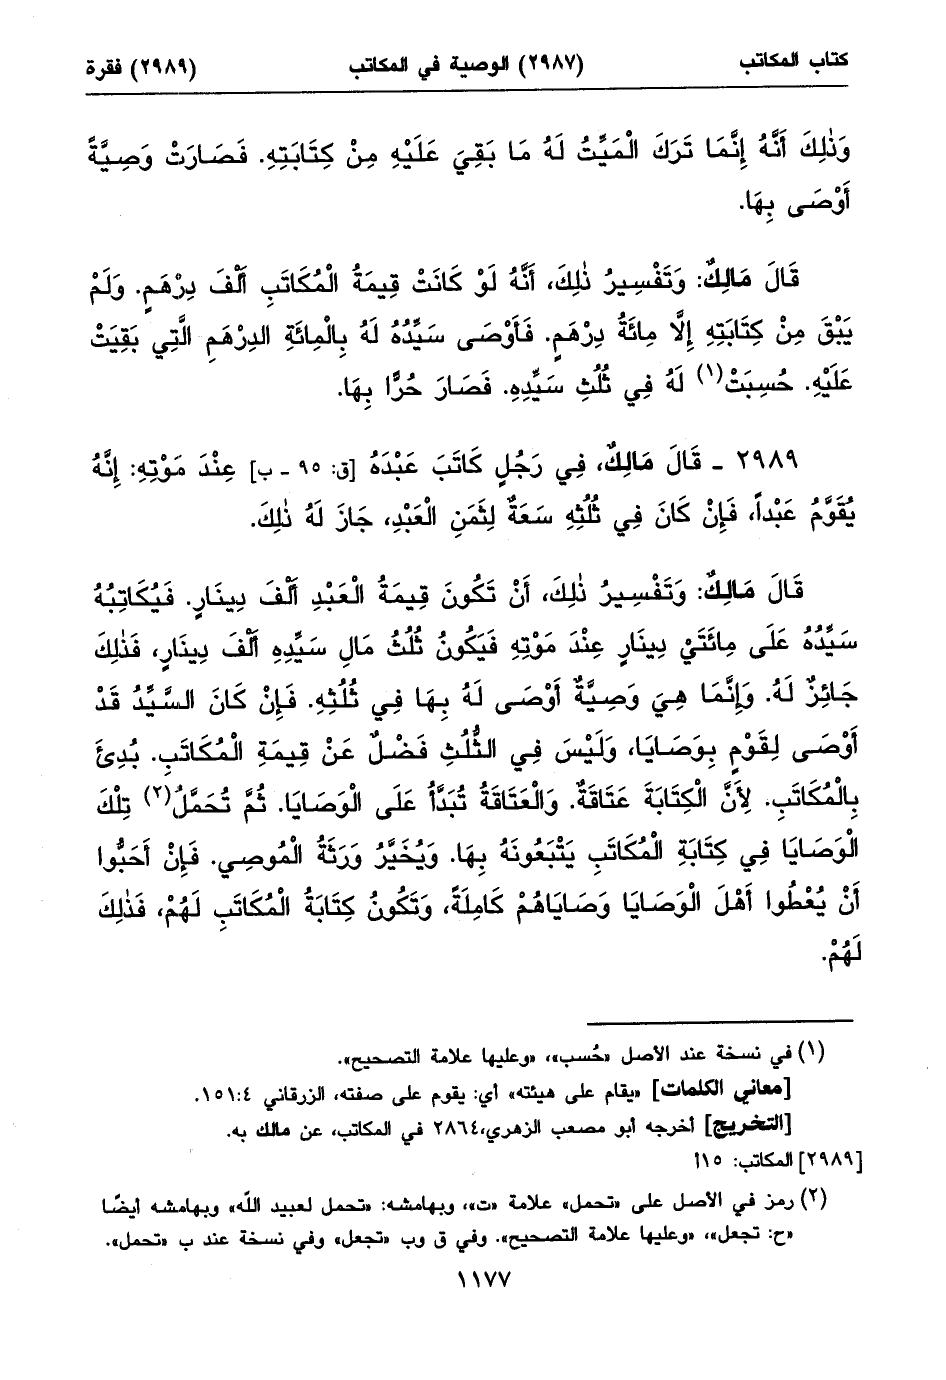 كتاب المكاتب (٢٩٨٧) الوصية في المكاتب (٢٩٨٩) فقرة
وَذٰلِكَ أَنَّهُ إِنَّمَا تَرَكَ الْمَيِّتُ لَهُ مَا بَقِيَ عَلَيْهِ مِنْ كِتَابَتِهِ. فَصَارَتْ وَصِيَّةً
أَوْصَى بِهَا.
قَالَ مَالِكٌ: وَتَفْسِيرُ ذٰلِكَ، أَنَّهُ لَوْ كَانَتْ قِيمَةُ الْمُكَاتَبِ أَلْفَ دِرْهَمٍ. وَلَمْ
يَبْقَ مِنْ كِتَابَتِهِ إِلَّا مِائَةُ دِرْهَمٍ. فَأَوْصَى سَيِّدُهُ لَهُ بِالْمِائَةِ الدِرْهَمِ الَّتِي بَقِيَتْ
عَلَيْهِ. حُسِبَتْ(١) لَهُ فِي ثُلُثِ سَيِّدِهِ. فَصَارَ حُرًّا بِهَا.
٢٩٨٩ ـ قَالَ مَالِكٌ، فِي رَجُلٍ كَاتَبَ عَبْدَهُ [ق: ٩٥ ـ ب] عِنْدَ مَوْتِهِ: إِنَّهُ
يُقَوَّمُ عَبْداً، فَإِنْ كَانَ فِي ثُلُثِهِ سَعَةٌ لِثَمَنِ الْعَبْدِ، جَازَ لَهُ ذٰلِكَ.
قَالَ مَالِكٌ: وَتَفْسِيرُ ذٰلِكَ، أَنْ تَكُونَ قِيمَةُ الْعَبْدِ أَلْفَ دِينَارٍ. فَيُكَاتِبُهُ
سَيِّدُهُ عَلَى مِائَتَيْ دِينَارٍ عِنْدَ مَوْتِهِ فَيَكُونُ ثُلُثُ مَالِ سَيِّدِهِ أَلْفَ دِينَارٍ، فَذٰلِكَ
جَائِزٌ لَهُ. وَإِنَّمَا هِيَ وَصِيَّةٌ أَوْصَى لَهُ بِهَا فِي ثُلُثِهِ. فَإِنْ كَانَ السَّيِّدُ قَدْ
أَوْصَى لِقَوْمٍ بِوَصَايَا، وَلَيْسَ فِي الثُّلُثِ فَضْلٌ عَنْ قِيمَةِ الْمُكَاتَبِ. بُدِئَ
بِالْمُكَاتَبِ. لِأَنَّ الْكِتَابَةَ عَتَاقَةٌ. وَالْعَتَاقَةُ تُبَدَّأُ عَلَى الْوَصَايَا. ثُمَّ تُحَمَّلُ(٢) تِلْكَ
الْوَصَايَا فِي كِتَابَةِ الْمُكَاتَبِ يَتْبَعُونَهُ بِهَا. وَيُخَيَّرُ وَرَثَةُ الْمُوصِي. فَإِنْ أَحَبُّوا
أَنْ يُعْطُوا أَهْلَ الْوَصَايَا وَصَايَاهُمْ كَامِلَةً، وَتَكُونُ كِتَابَةُ الْمُكَاتَبِ لَهُمْ، فَذٰلِكَ
لَهُمْ.
(١) في نسخة عند الأصل «حُسب»، «وعليها علامة التصحيح».
[معاني الكلمات] «يقام على هيئته» أي: يقوم على صفته، الزرقاني ١٥١:٤.
[التخريج] أخرجه أبو مصعب الزهري،٢٨٦٤ في المكاتب، عن مالك به.
[٢٩٨٩] المكاتب: ١٥أ
(٢) رمز في الأصل على «تحمل» علامة «ت»، وبهامشه: «تحمل لعبيد الله» وبهامشه أيضًا
«ح: تجعل»، «وعليها علامة التصحيح». وفي ق وب «تجعل» وفي نسخة عند ب «تحمل».
١١٧٧